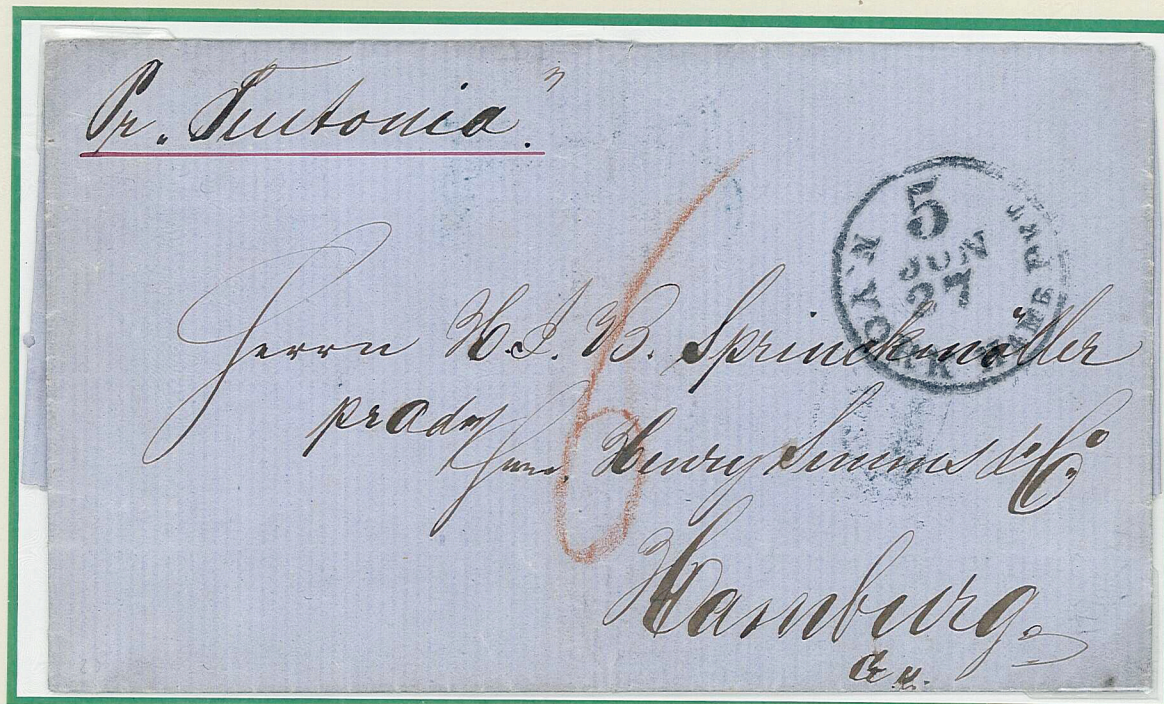 Pr. „Teutonia."
5
JUN
27
N. YORK HAMB PKT
Herrn H. J. B. Sprinckmöller
pr Ady
Herr. Henry Simms & Co.
6
Hamburg.